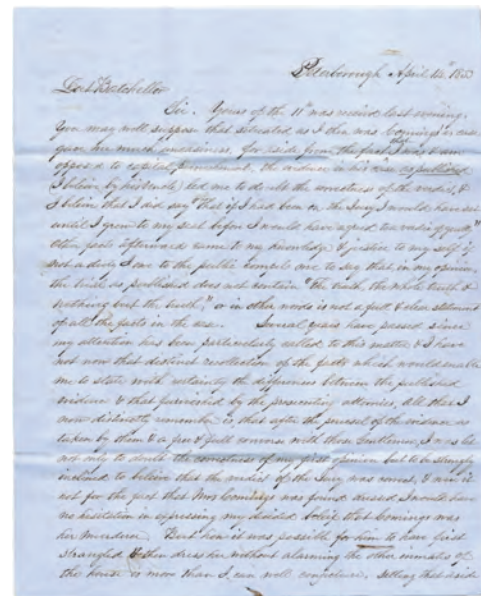 Peterborough April 14th 185
Dr. Batchellor
Sir. Yours of the 11th was received last evening.
You may well suppose that situated as I then was Comings's case
gave me much uneasiness, for aside from the fact that I was & am
opposed to capital punishment, the evidence in his case as published
(I believe by his ) led me to doubt the correctness of the verdict, &
I believe that I did say "that if I had been on the Jury I would have sit
until I grew to my seat before I would have agreed to a verdict of guilty."
Other facts afterward came to my knowledge & justice to my self if
not a duty I owe to the public compels me to say that in my opinion,
the trial as published does not contain "the truth, the whole truth &
nothing but the truth," or in other words is not a full & clear statement
of all the facts in the case. Several years have passed since
my attention has been particularly called to this matter & I have
not now that distinct recollection of the facts which would enable
me to state with certainty the differences between the published
evidence & that furnished by the prosecuting attornies, all that I
now distinctly remember is, that after the perusal of the evidence as
taken by them & a free & full converse with those Gentlemen, I was led
not only to doubt the correctness of my first opinion but to be strongly
inclined to believe that the verdict of the Jury was correct, & were it
not for the fact that Mrs Comings was found dressed I would have
no hesitation in expressing my decided belief that Comings was
her murderer. But how it was possible for him to have first
strangled & then dress her without alarming the other inmates of
the house is more than I can well conjecture, setting that aside